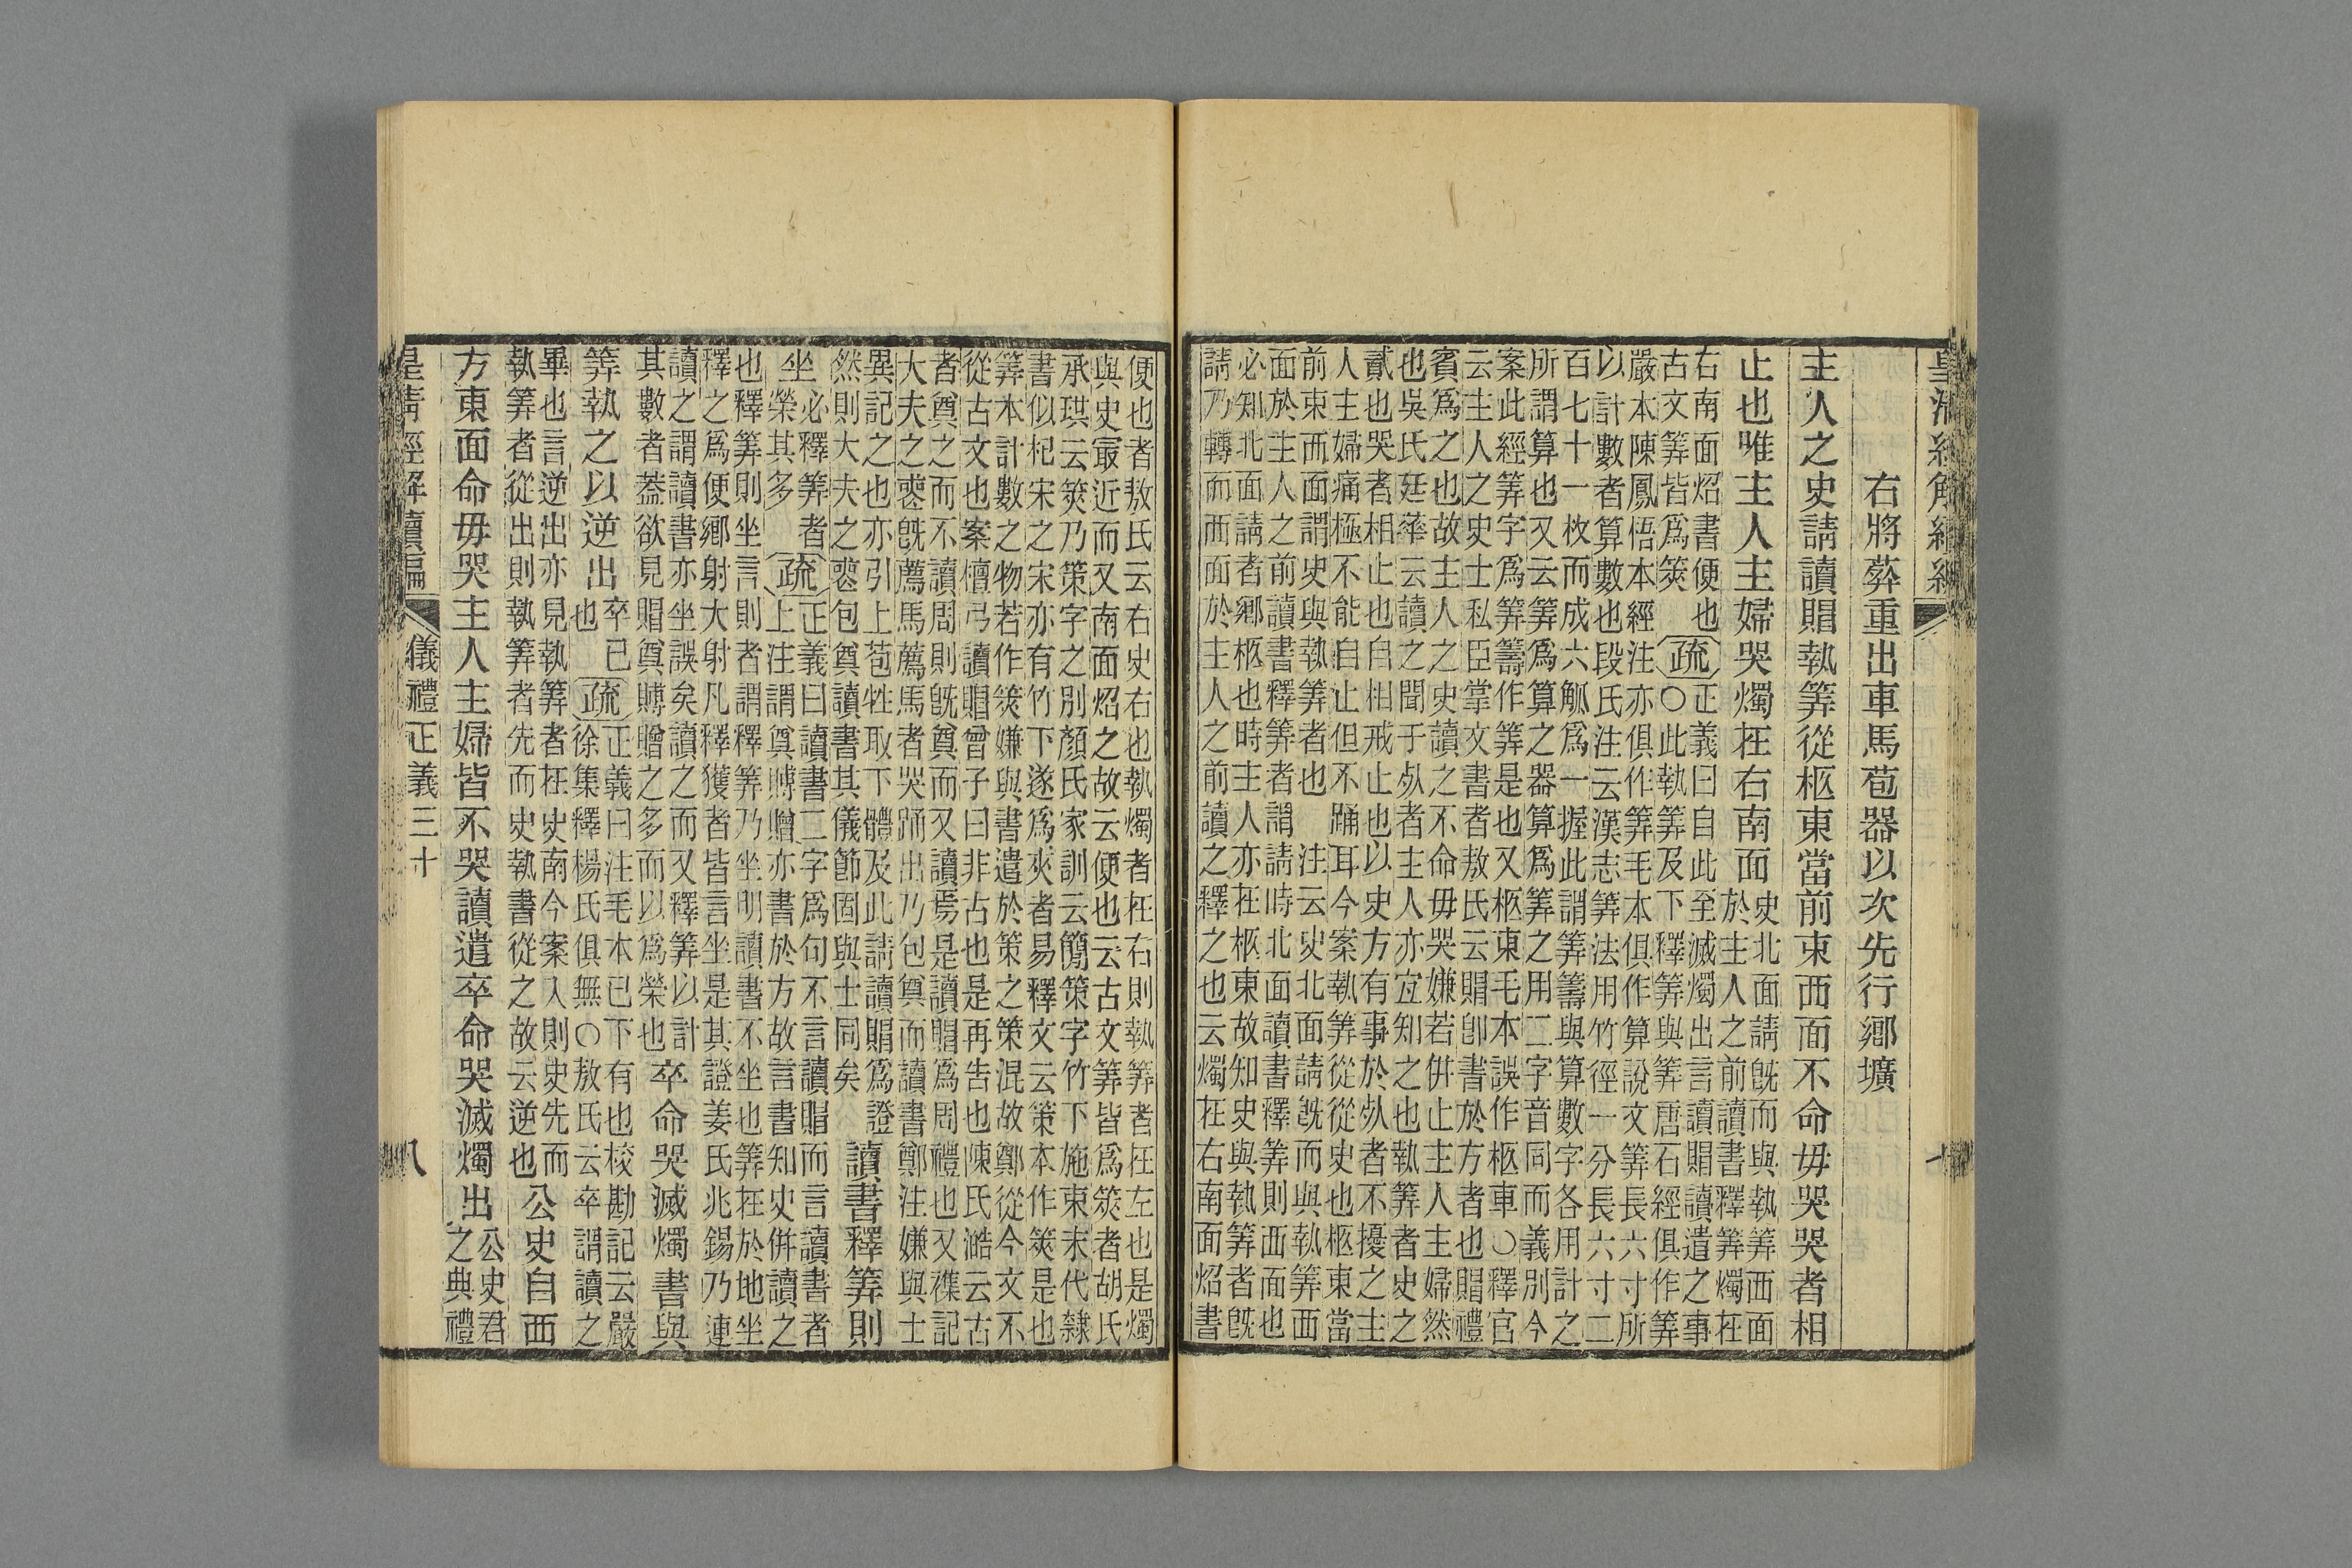 皇清經解續編
右將葬重出車馬苞器以次先行鄉壙
主人之史請讀賵執筭從柩東當前束西面不命毋哭哭者相
止也唯主人主婦哭燭在右南面
史北面請旣而與執筭西面
於主人之前讀書釋筭燭在
右南面炤書便也
古文筭皆爲筴
疏
正義曰自此至滅燭出言讀賵讀遣之事
○此執筭及下釋筭與筭唐石經俱作筭筭
嚴本陳鳳梧本經注亦俱作筭毛本俱作算說文筭長六寸所
以計數者算數也段氏注云漢志筭法用竹徑一分長六寸二
百七十一枚而成六觚爲一握此謂筭籌與算數字各用計之
所謂算也又云筭爲算之器算爲筭之用二字音同而義別今
案此經筭字爲筭籌作筭是也又柩東毛本誤作柩車○釋官
云主人之史士私臣掌文書者敖氏云賵卽書於方者也賵禮
賓爲之也故主人之史讀之不命毋哭嫌若併止主人主婦然
也吳氏廷華云讀之聞于𣦸者主人亦宜知之也執筭者史之
貳也哭者相止也自相戒止也以史方有事於𣦸者不擾之主
人主婦痛極不能自止但不踊耳今案執筭從史也柩東當
前束西面謂史與執筭者也 注云史北面請旣而與執筭西
面於主人之前讀書釋筭者謂請時北面讀書釋筭則西面也
必知北面請者鄉柩也時主人亦在柩東故知史與執筭者旣
請乃轉而西面於主人之前讀之釋之也云燭在右南面炤書
便也者敖氏云右史右也執燭者在右則執筭者在左也是燭
與史㝡近而又南面炤之故云便也云古文筭皆爲筴者胡氏
承珙云筴乃策字之別顏氏家訓云簡策字竹下施朿末代隸
書似杞宋之宋亦有竹下遂爲夾者易釋文云策本作筴是也
筭本計數之物若作筴嫌與書遣於策之策混故鄭從今文不
從古文也案檀弓讀賵曾子曰非古也是再告也陳氏澔云古
者奠之而不讀周則旣奠而又讀焉是讀賵爲周禮也又襍記
大夫之喪旣薦馬薦馬者哭踊出乃包奠而讀書鄭注嫌與士
異記之也亦引上苞牲取下體及此請讀賵爲證
然則大夫之喪包奠讀書其儀節固與士同矣
讀書釋筭則
坐
必釋筭者
榮其多
疏
正義曰讀書二字爲句不言讀賵而言讀書者
上注謂奠賻贈亦書於方故言書知史併讀之
也釋筭則坐言則者謂釋筭乃坐明讀書不坐也筭在於地坐
釋之爲便鄉射大射凡釋獲者皆言坐是其證姜氏兆錫乃連
讀之謂讀書亦坐誤矣讀之而又釋筭以計
其數者葢欲見賵奠賻贈之多而以爲榮也
卒命哭滅燭書與
筭執之以逆出
卒已
也
疏
正義曰注毛本已下有也校勘記云嚴
徐集釋楊氏俱無○敖氏云卒謂讀之
畢也言逆出亦見執筭者在史南今案入則史先而
執筭者從出則執筭者先而史執書從之故云逆也
公史自西
方東面命毋哭主人主婦皆不哭讀遣卒命哭滅燭出
公史君
之典禮
皇清經解續編
儀禮正義三十
八